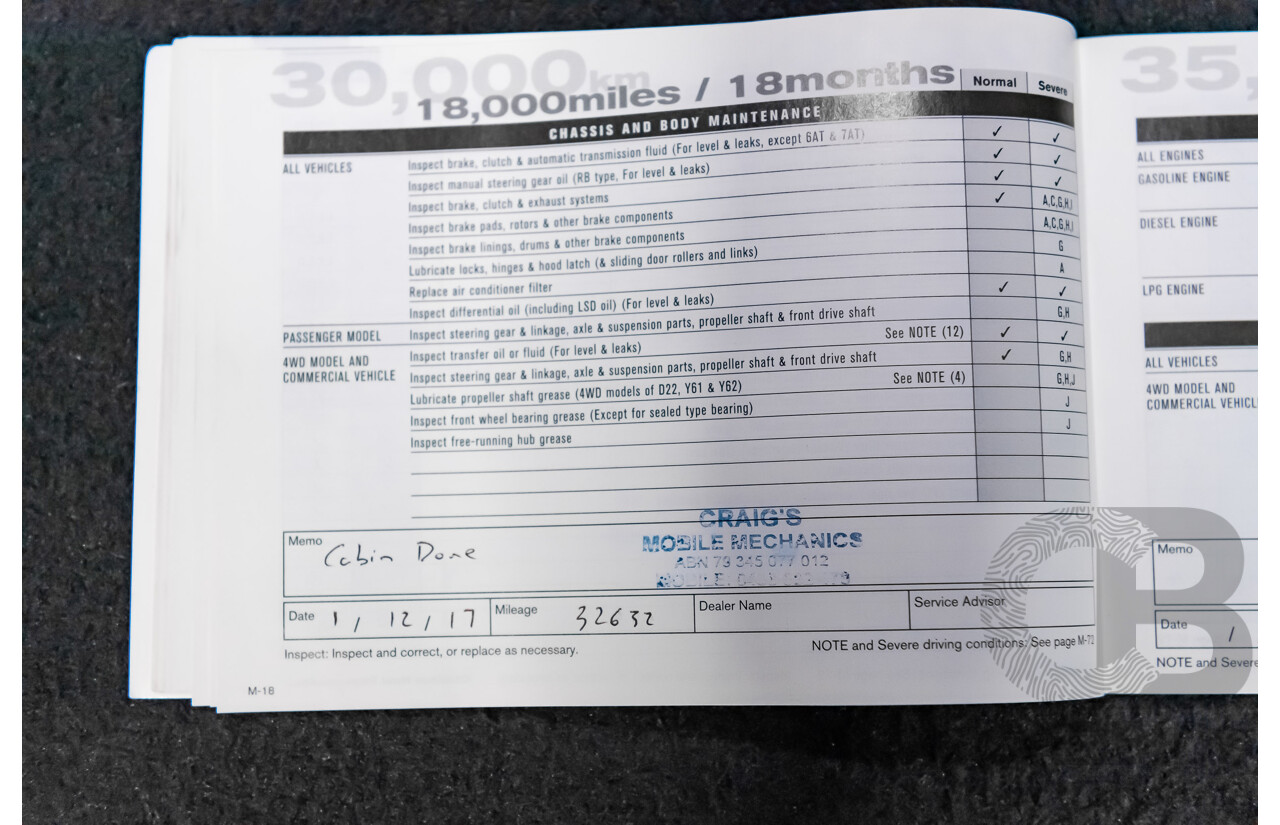 30,000km
18,000miles / 18months
Normal Severe
CHASSIS AND BODY MAINTENANCE
ALL VEHICLES
Inspect brake, clutch & automatic transmission fluid (For level & leaks, except 6AT & 7AT) ✓ ✓
Inspect manual steering gear oil (RB type, For level & leaks) ✓ ✓
Inspect brake, clutch & exhaust systems ✓ ✓
Inspect brake pads, rotors & other brake components ✓ A,C,G,H,I
Inspect brake linings, drums & other brake components A,C,G,H,I
Lubricate locks, hinges & hood latch (& sliding door rollers and links) G
Replace air conditioner filter A
Inspect differential oil (including LSD oil) (For level & leaks) ✓ ✓
PASSENGER MODEL
Inspect steering gear & linkage, axle & suspension parts, propeller shaft & front drive shaft G,H
4WD MODEL AND
COMMERCIAL VEHICLE
Inspect transfer oil or fluid (For level & leaks) See NOTE (12) ✓ ✓
Inspect steering gear & linkage, axle & suspension parts, propeller shaft & front drive shaft ✓ G,H
Lubricate propeller shaft grease (4WD models of D22, Y61 & Y62) See NOTE (4) G,H,J
Inspect front wheel bearing grease (Except for sealed type bearing) J
Inspect free-running hub grease J
Memo
Cabin Done
CRAIG'S
MOBILE MECHANICS
ABN 79 345 077 012
MOBILE:
Date 1 / 12 / 17
Mileage 32632
Dealer Name
Service Advisor
Inspect: Inspect and correct, or replace as necessary.
NOTE and Severe driving conditions: See page M-72
M-18
35,
ALL ENGINES
GASOLINE ENGINE
DIESEL ENGINE
LPG ENGINE
ALL VEHICLES
4WD MODEL AND
COMMERCIAL VEHICL
Memo
Date /
NOTE and Severe
CB